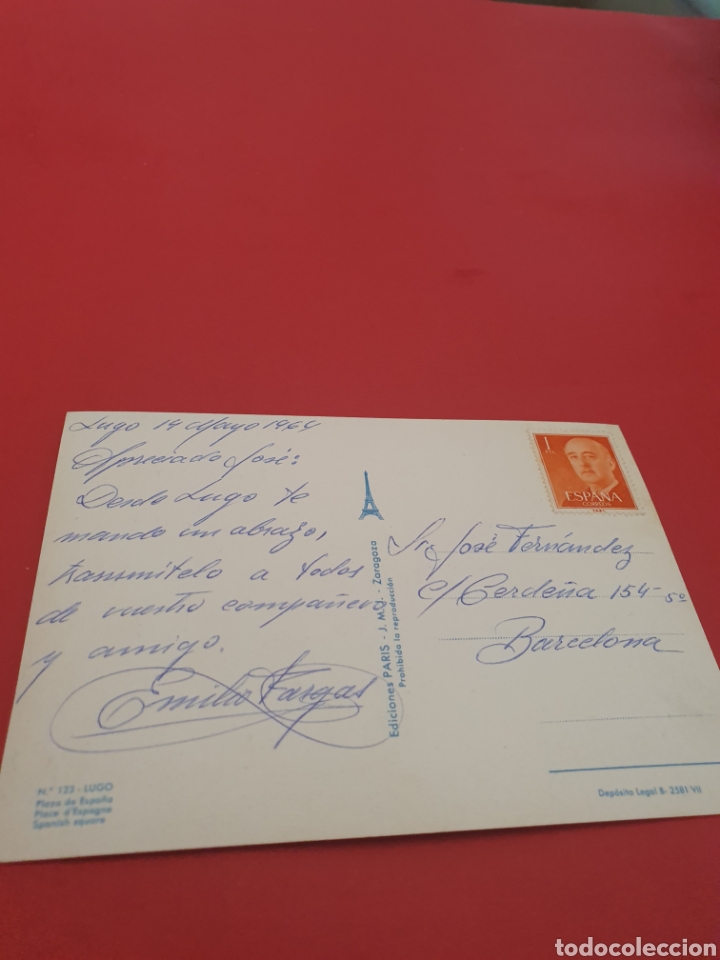 Lugo 14 Mayo 1964
Apreciado José:
Desde Lugo te
mando un abrazo,
transmitelo a todos
de vuestro compañero
y amigo.
Emilio Vargas
Nº 123 - LUGO
Plaza de España
Place d'Espagne
Spanish square
Ediciones PARIS - J.M.J. - Zaragoza
Prohibida la reproducción
1
PTA
ESPAÑA
CORREOS
Sr. José Fernández
c/ Cerdeña 154-5º
Barcelona
Depósito Legal B- 2581 VII
todocoleccion